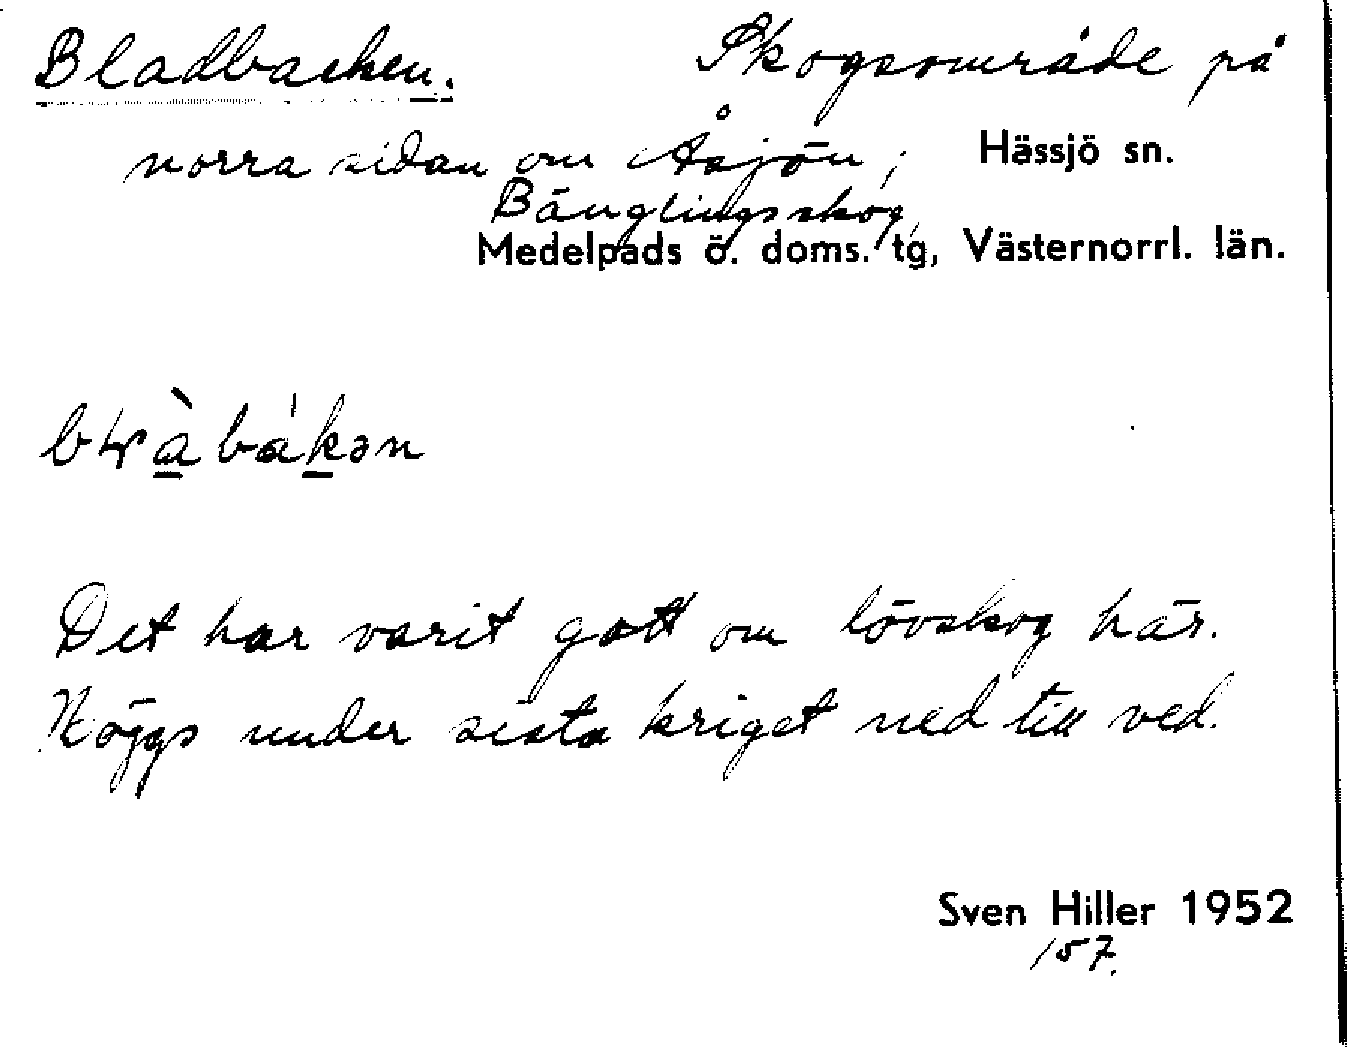 Bladbacken. Skogsområde på
norra sidan om Åsjön, Hässjö sn.
Bänglingsskog,
Medelpads ö. doms. tg, Västernorrl. län.
Det har varit gott om lövskog här.
Höggs under sista kriget ned till ved.
Sven Hiller 1952
157.